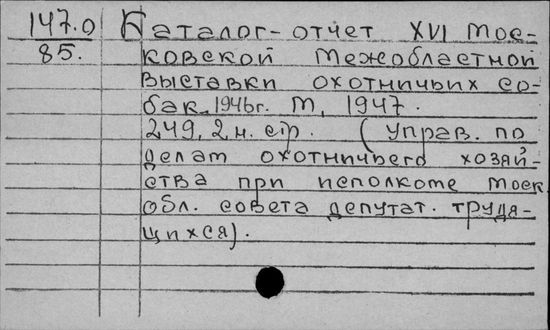 147.0 Каталог-отчет XVI Мос-
85. ковской межобластной
выставки охотничьих со-
бак. 1946г. М, 1947.
249, 2 н. стр. (Управ. по
делат охотничьего хозяй-
ства при исполкоме Моск.
обл. совета депутат. трудя-
щихся).